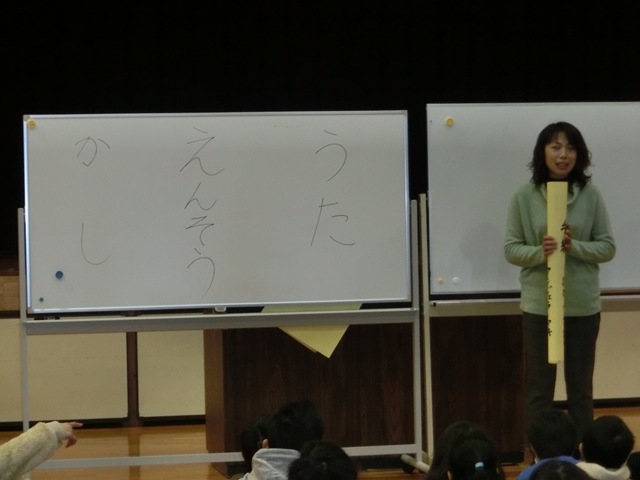 うた
えんそう
かし